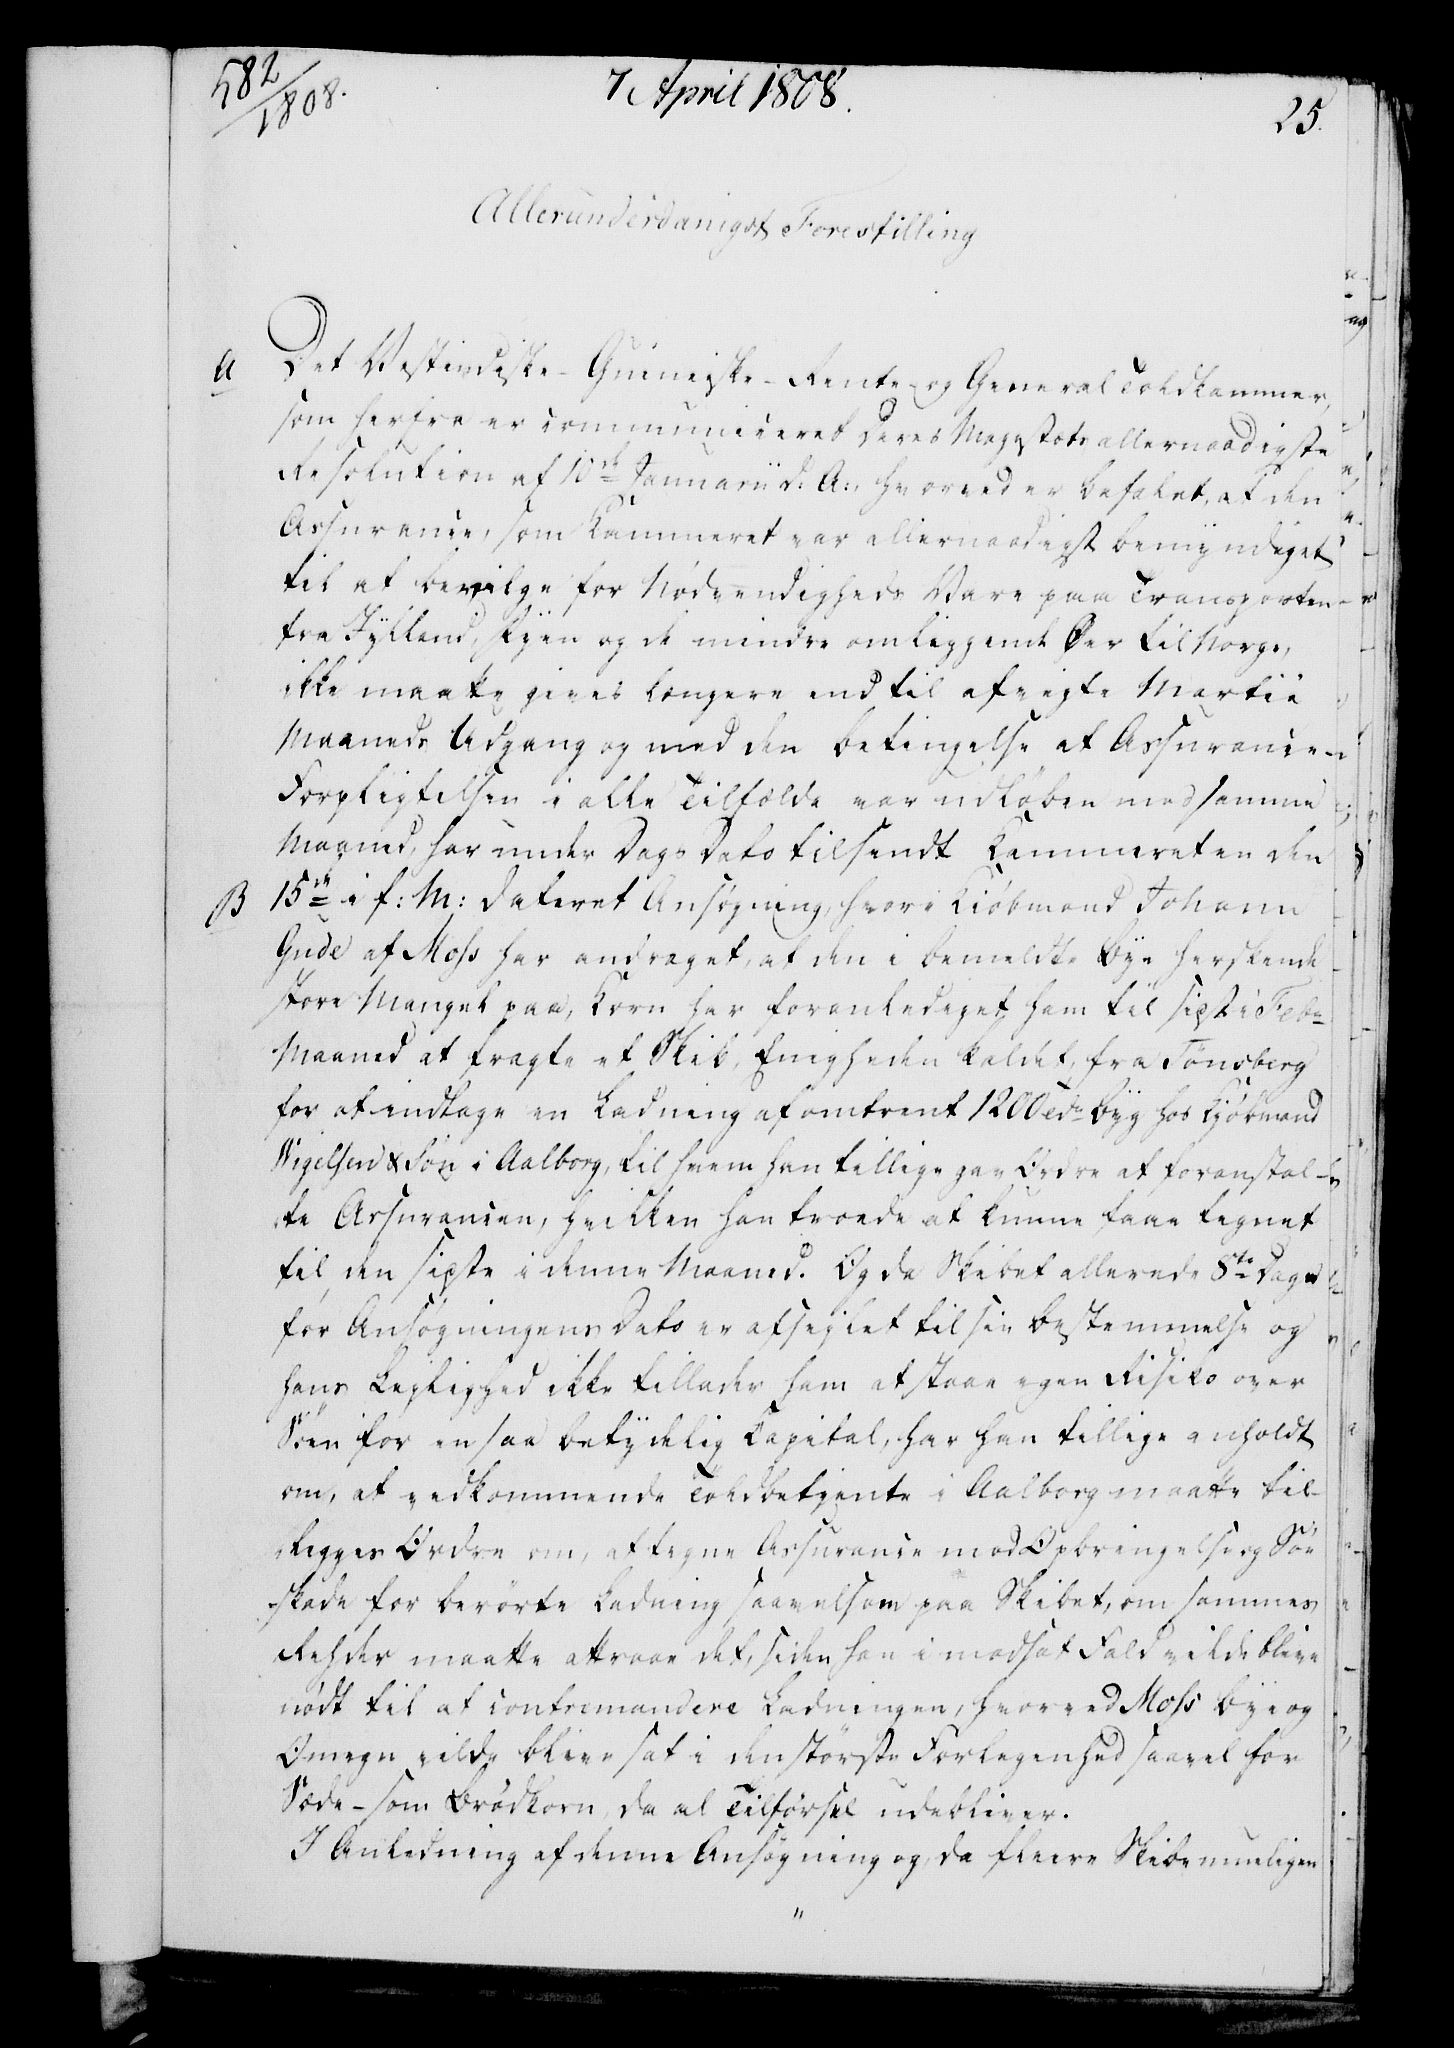 582
1808.
7 April 1808.
25.
Allerunderdanigst Forestilling
A Det Vestindiske-Guineiske-Rente- og General Toldkammer,
som herfra er communiceret Deres Majestæts allernaadigste
Resolution af 10de Januarii d: A:, hvorved er befalet, at den
Assurance, som Kammeret var allernaadigst bemyndiget
til at bevilge for Nødvendigheds Vare paa Transporten
fra Jylland, Fyen og de mindre omliggende Øer til Norge,
ikke maatte gives længere end til afvigte Martii
Maaneds Udgang og med den betingelse at Assurance-
Forpligtelsen i alle Tilfælde var udløben med samme
Maaned, har under Dags Dato tilsendt Kammeret en den
B 15de i f: M: dateret Ansøgning, hvori Kiøbmand Johann
Gude af Moss har andraget, at den i bemeldte Bye herskende
store Mangel paa Korn har foranlediget ham til sidst i Febr
Maaned at fragte et Skib, Enigheden kaldet, fra Tønsberg
for at indtage en Ladning af omtrent 1200 Tdr Byg hos Kjøbmand
Wigelsen & Søn i Aalborg, til hvem han tillige gav Ordre at foranstal-
te Assurancen, hvilken han troede at kunne faae tegnet
til den sidste i denne Maaned. Og da Skibet allerede 8te Dage
før Ansøgningens Dato er afseglet til sin bestemmelse og
hans Leylighed ikke tillader ham at staae egen Risiko over
Søen for en saa betydelig Capital, har han tillige anholdt
om, at vedkommende Toldbetjente i Aalborg maatte til-
lægges Ordre om, at tegne Assurance mod Opbringelse og Søe
skade for berørte Ladning saavelsom paa Skibet, om sammes
Rehder maatte attraae det, siden han i modsat Fald vilde blive
nødt til at contremandere Ladningen, hvorved Moss Bye og
Omegn vilde blive sat i den største Forlegenhed saavel for
Sæde- som Brødkorn, da al Tilførsel udebliver.
I Anledning af denne Ansøgning og, da fleere Skibe mueligen